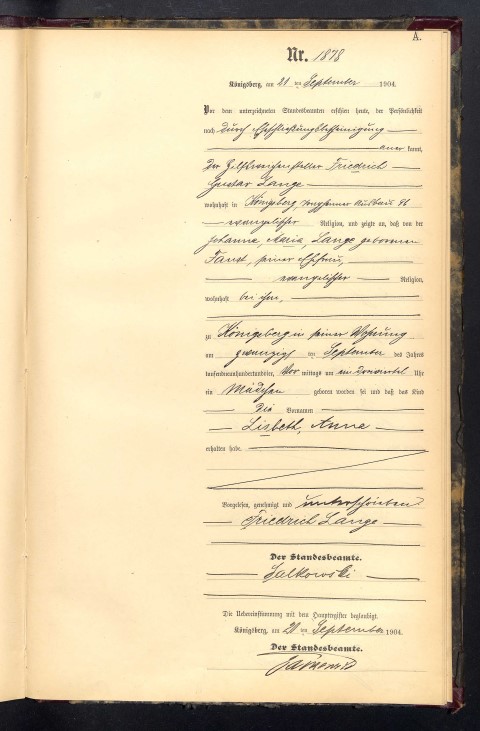 A.
Nr. 1878
Königsberg, am 21 ten September 1904.
Vor dem unterzeichneten Standesbeamten erschien heute, der Persönlichkeit
nach durch Eheschließungsbescheinigung
aner kannt,
der Hilfsweichensteller Friedrich
Gustav Lange
wohnhaft in Königsberg, Ausbau
evangelischer Religion, und zeigte an, daß von der
Johanna Maria, Lange geborenen
Faust, seiner Ehefrau,
evangelischer Religion,
wohnhaft bei ihm,
zu Königsberg in seiner Wohnung
am zwanzigsten September des Jahres
tausendneunhundertundvier, Vor mittags um ein Uhr
ein Mädchen geboren worden sei und daß das Kind
die Vornamen
Lisbeth, Anna
erhalten habe.
Vorgelesen, genehmigt und unterschrieben
Friedrich Lange
Der Standesbeamte.
Salkowski
Die Uebereinstimmung mit dem Hauptregister beglaubigt.
Königsberg, am 21 ten September 1904.
Der Standesbeamte.